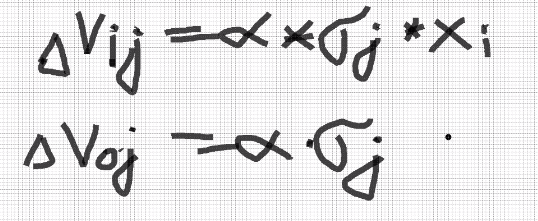 ΔVij = α * σj * xi
ΔVoj = α · σj ·